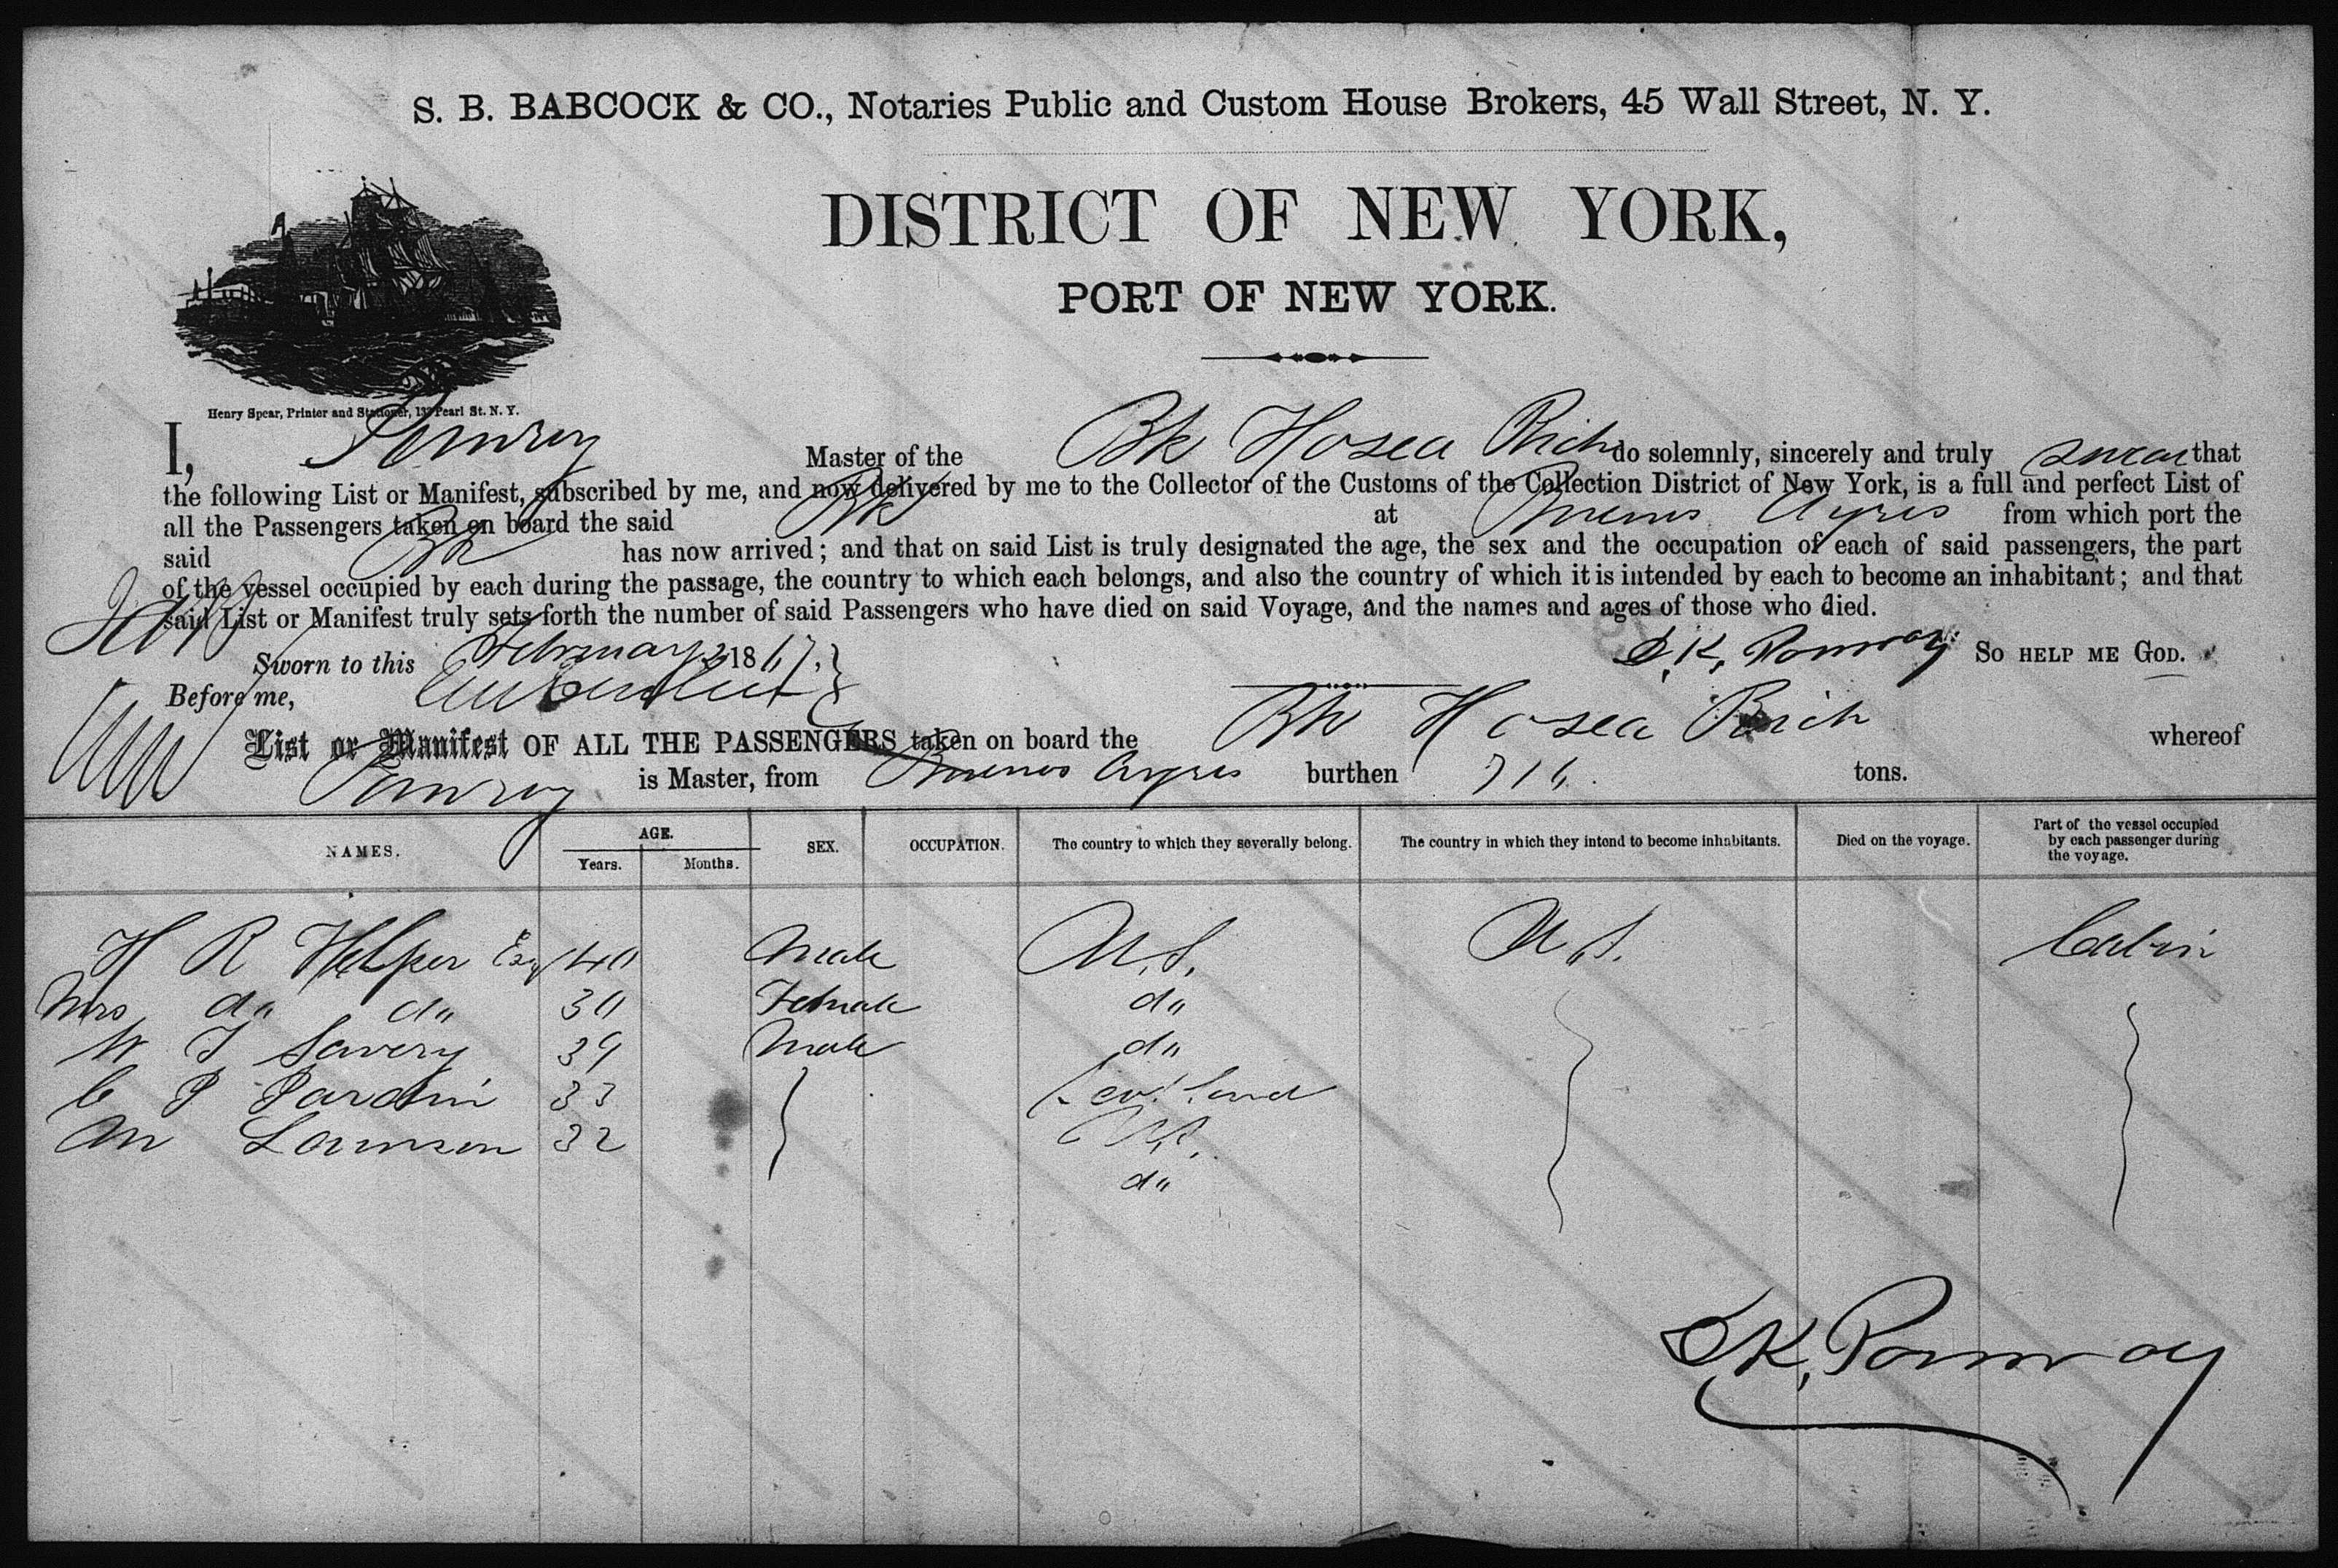 S. B. BABCOCK & CO., Notaries Public and Custom House Brokers, 45 Wall Street, N. Y.
DISTRICT OF NEW YORK,
PORT OF NEW YORK.
Henry Spear, Printer and Stationer, 133 Pearl St. N. Y.
I, Pomroy Master of the Bk Hosea Rich do solemnly, sincerely and truly swear that
the following List or Manifest, subscribed by me, and now delivered by me to the Collector of the Customs of the Collection District of New York, is a full and perfect List of
all the Passengers taken on board the said Bk at Buenos Ayres from which port the
said Bk has now arrived; and that on said List is truly designated the age, the sex and the occupation of each of said passengers, the part
of the vessel occupied by each during the passage, the country to which each belongs, and also the country of which it is intended by each to become an inhabitant; and that
said List or Manifest truly sets forth the number of said Passengers who have died on said Voyage, and the names and ages of those who died.
Sworn to this February 2 1867. S. K. Pomroy So HELP ME GOD.
Before me,
List or Manifest OF ALL THE PASSENGERS taken on board the Bk Hosea Rich whereof
Pomroy is Master, from Buenos Ayres burthen 716 tons.
NAMES. AGE. Years. Months. SEX. OCCUPATION. The country to which they severally belong. The country in which they intend to become inhabitants. Died on the voyage. Part of the vessel occupied by each passenger during the voyage.
H R Helper Esq 40 Male U.S. U.S. Cabin
Mrs do do 30 Female do
W T Savery 39 Male do
C P Jardin 33
M Lawnson 32 U.S.
do
S K, Pomroy